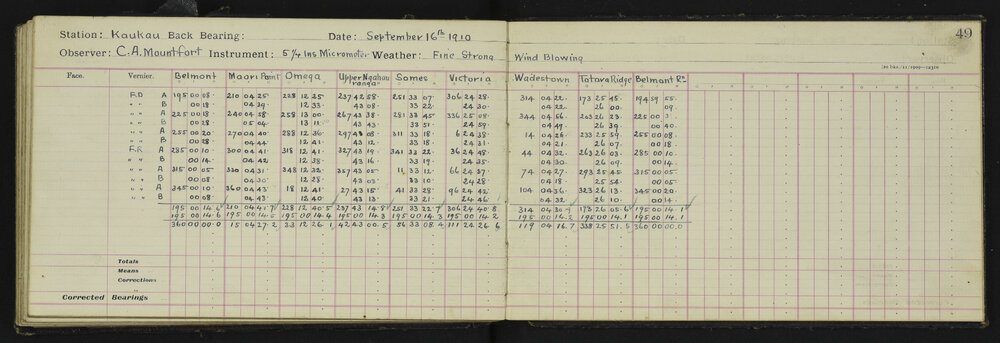 Station: Kaukau Back Bearing: Date: September 16th 1910 49
Observer: C.A. Mountfort Instrument: 5¼ Ins Micrometer Weather: Fine Strong Wind Blowing
Face. Vernier. Belmont Maori Point Omega Upper Ngahauranga Somes Victoria Wadestown Totara Ridge Belmont Ro
F.D A 195 00 08 210 04 25 228 12 25 237 42 58 251 33 07 306 24 28 314 04 22 173 25 48 194 59 55
" " B 00 18 04 29 12 33 43 08 33 22 24 30 04 22 26 00 09
" " A 225 00 18 240 04 58 258 13 00 267 43 38 281 33 45 336 25 08 344 04 56 203 26 23 225 00
" " B 00 28 05 04 13 11 43 43 33 51 24 59 04 49 26 39 00 40
" " A 255 00 20 270 04 40 288 12 36 297 43 08 311 33 18 6 24 38 14 04 26 233 25 59 255 00 08
" " B 00 28 04 44 12 41 43 12 33 18 24 31 04 21 26 07 00 18
F.R A 285 00 10 300 04 41 318 12 41 327 43 19 341 33 22 36 24 48 44 04 32 263 26 03 285 00 10
" " B 00 14 04 42 12 38 43 16 33 19 24 35 04 30 26 09 00 14
" " A 315 00 05 330 04 31 348 12 32 357 43 05 11 33 12 66 24 37 74 04 27 293 25 45 315 00 05
" " B 00 08 04 30 12 28 43 03 33 10 24 28 04 18 25 54 00 05
" " A 345 00 10 360 04 43 18 12 41 27 43 15 41 33 28 96 24 42 104 04 36 323 26 13 345 00 20
" " B 00 08 04 43 12 40 43 13 33 21 24 46 04 32 26 10 00 14
195 00 14.6 210 04 41.7 228 12 40.5 237 43 14.8 251 33 22.7 306 24 40.8 314 04 30.9 173 26 05.6 195 00 14.1
195 00 14.6 195 00 14.5 195 00 14.4 195 00 14.3 195 00 14.3 195 00 14.2 195 00 14.2 195 00 14.1 195 00 14.1
360 00 00.0 15 04 27.2 33 12 26.1 42 43 00.5 56 33 08.4 111 24 26.6 119 04 16.7 338 25 51.5 360 00 00.0
Totals
Means
Corrections
"
Corrected Bearings